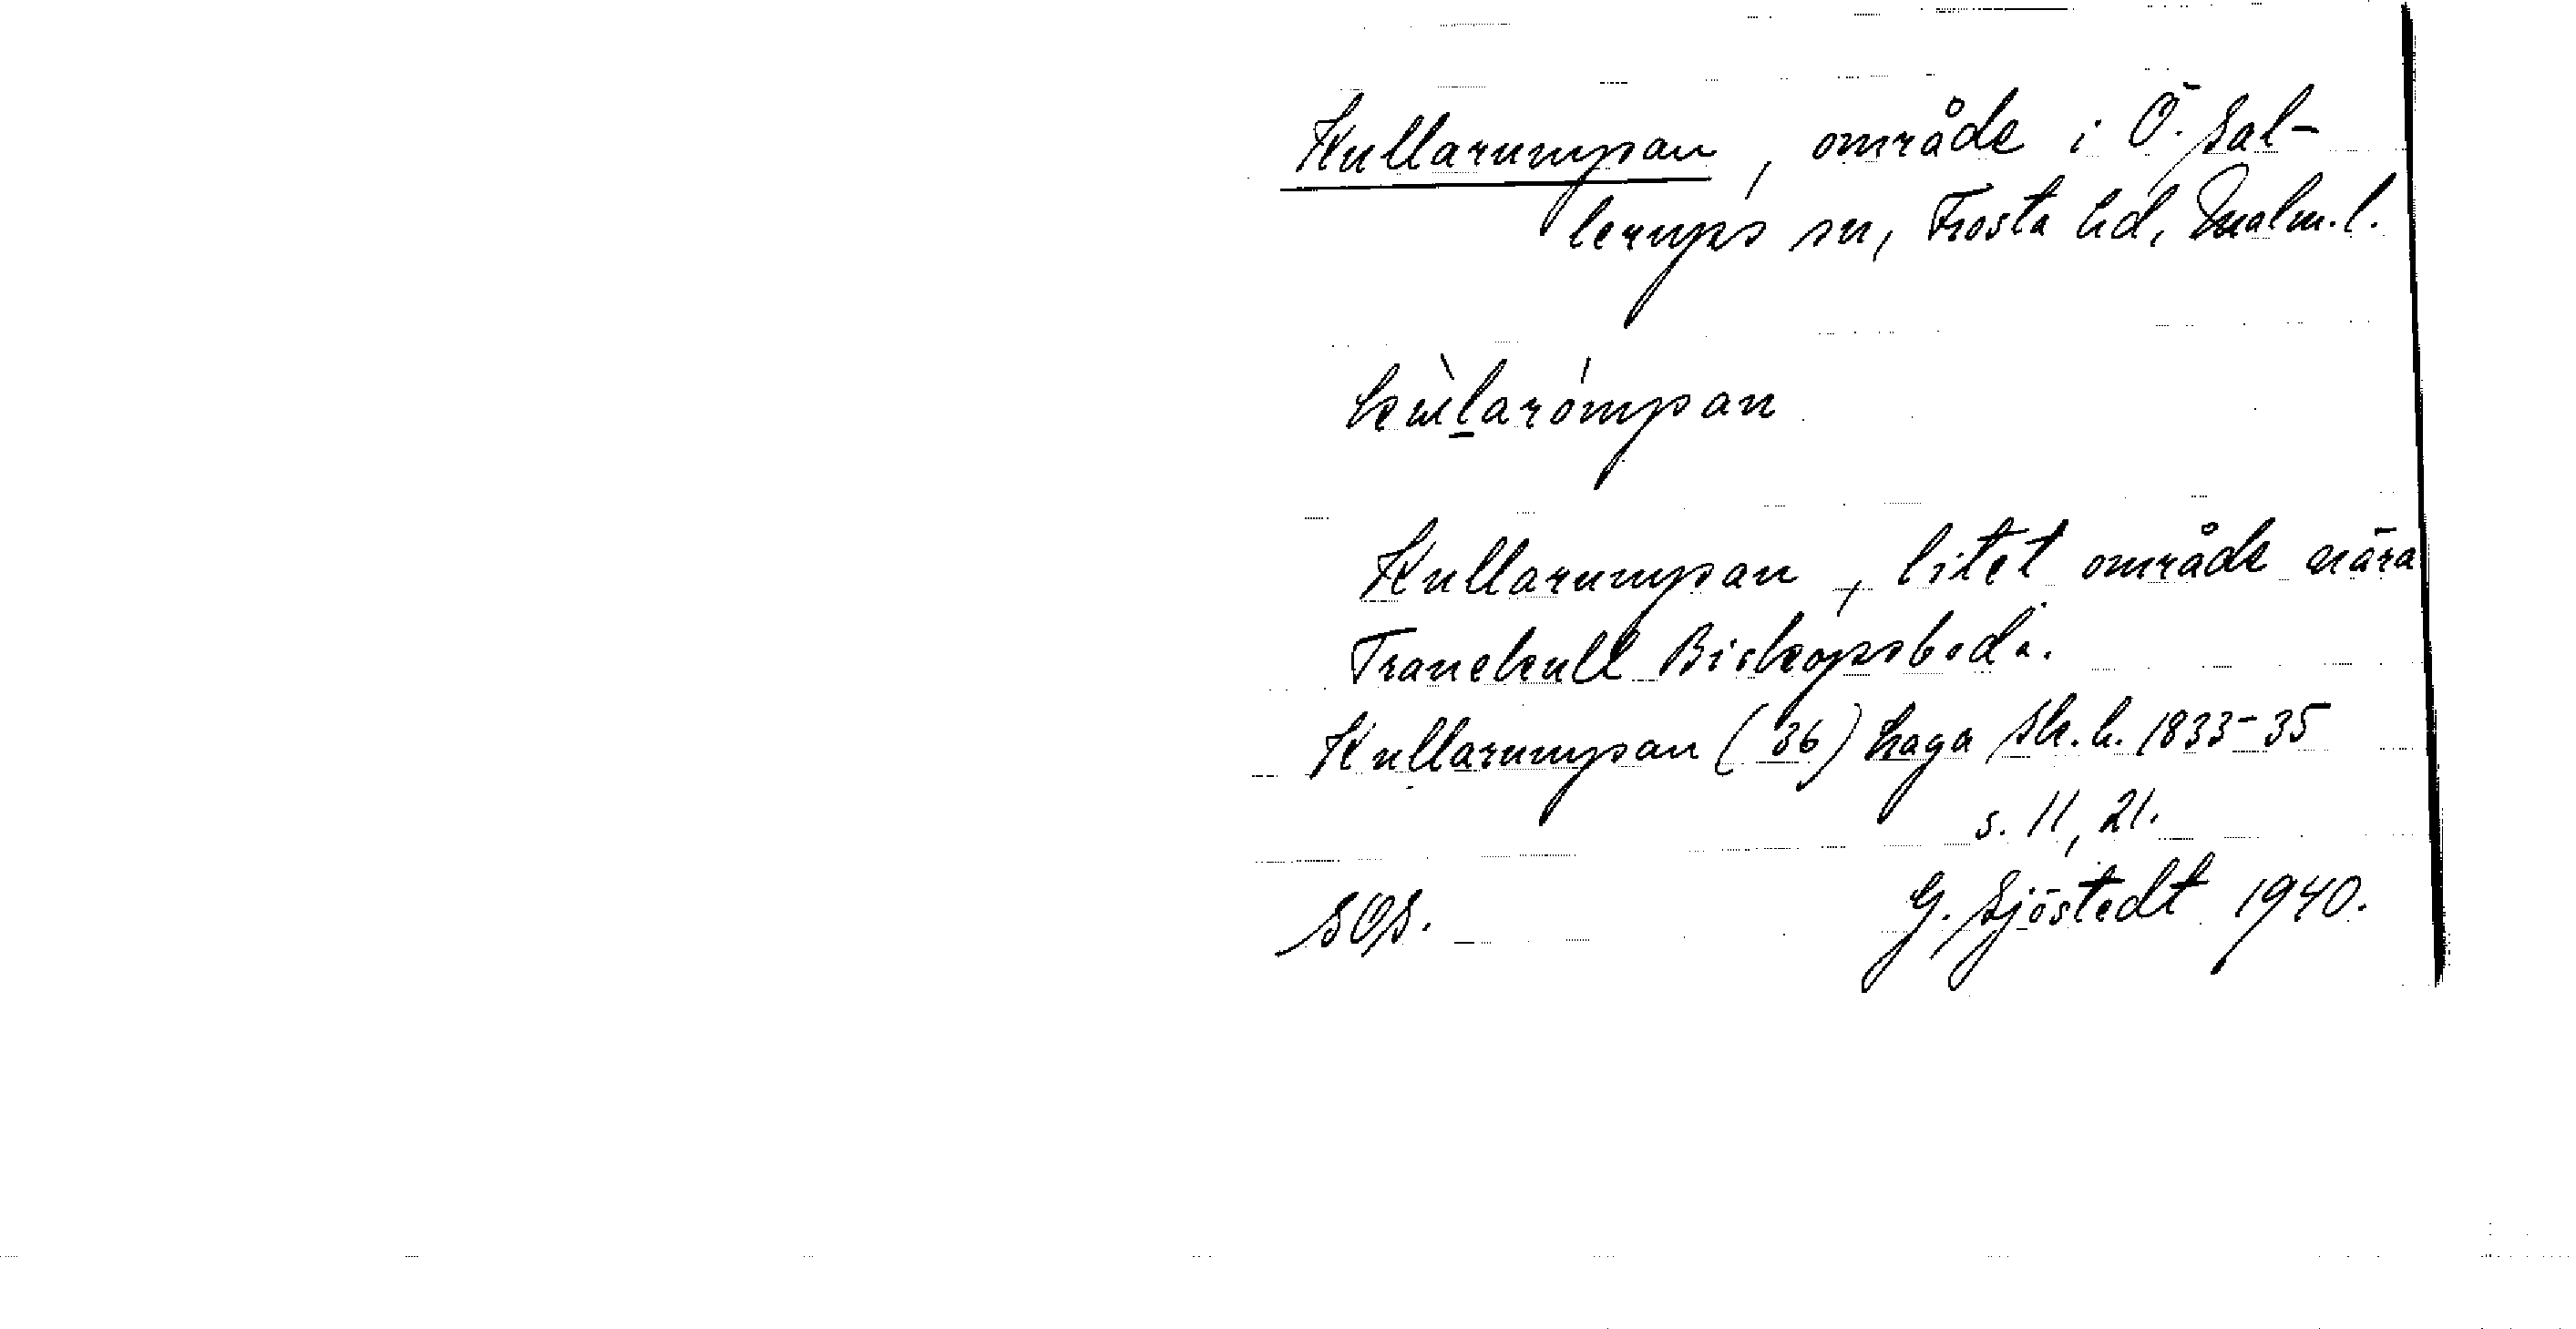 Kullarumpan, område i Ö. Sal-
lerups sn, Frosta hd, Malm. l.
kùlarómpan
Kullarumpan, litet område nära
Tranekull Biskopsboda.
Kullarumpan (36) haga Sk. h. 1833-35
s. 11, 21.
SOS. G. Sjöstedt 1940.